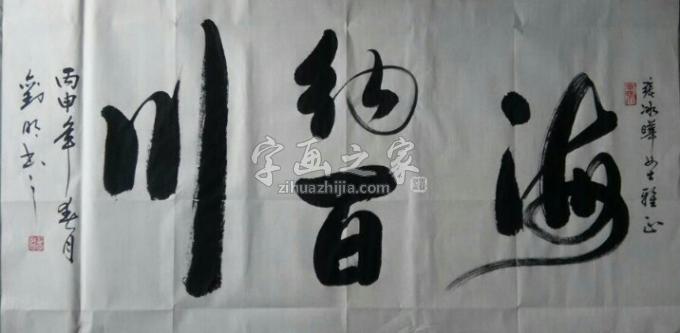 海纳百川
冰晔女士雅正
丙申年春月
劉明书
字画之家
zihuazhijia.com